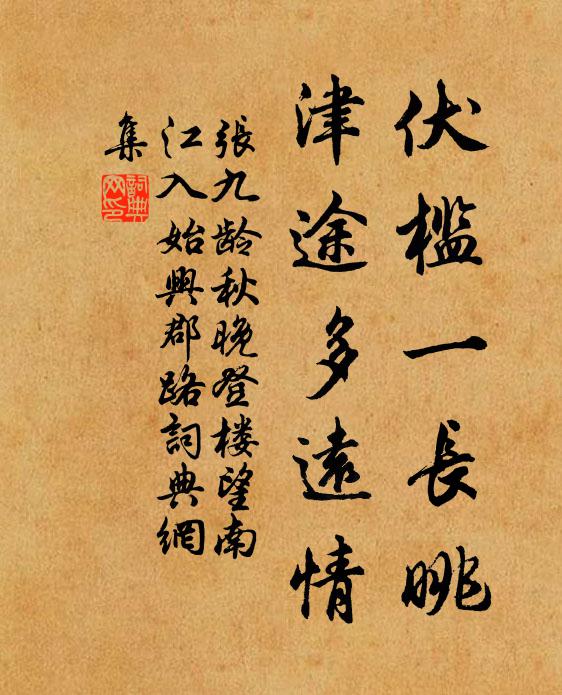 伏槛一長眺
津途多遠情
張九龄秋晚登楼望南
江入始興郡路詞典網
集
詞典网印